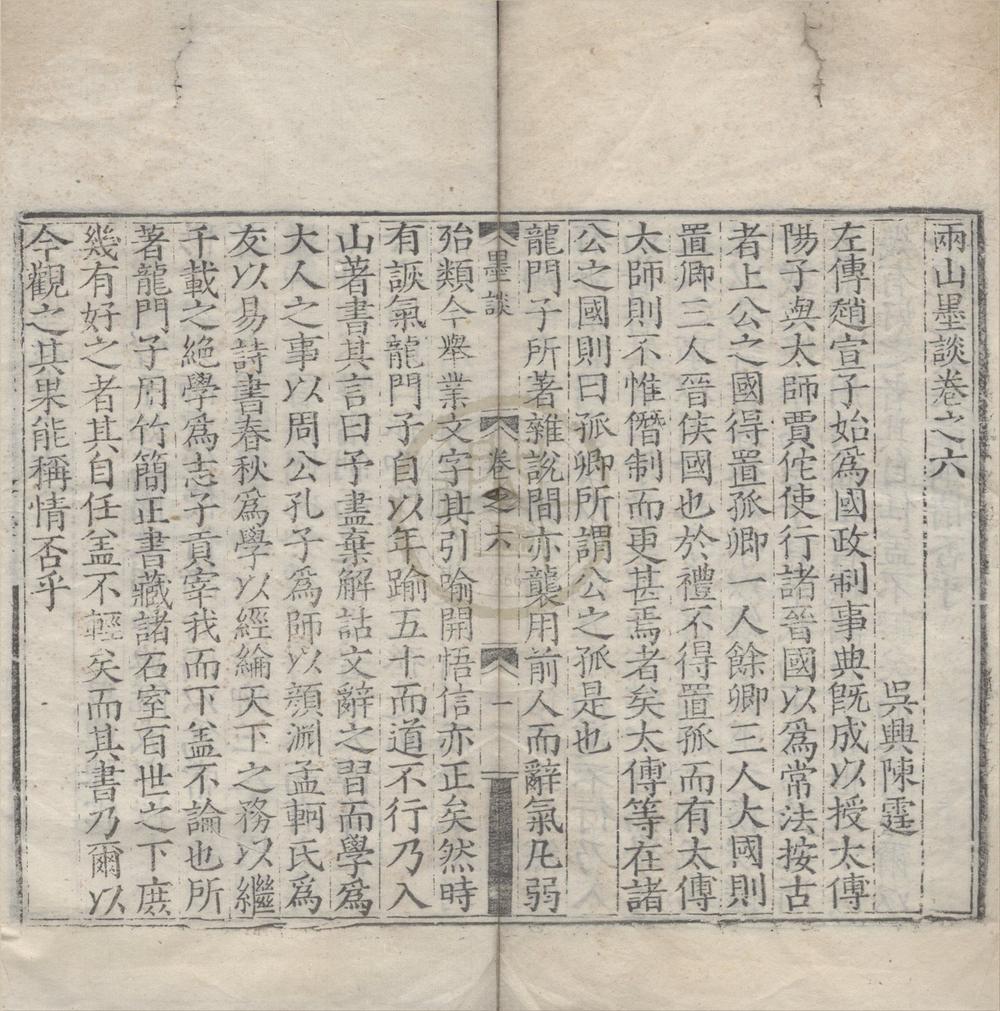 兩山墨談卷之六
吳興陳霆
左傳趙宣子始爲國政制事典旣成以授太傅
陽子與太師賈佗使行諸晉國以爲常法按古
者上公之國得置孤卿一人餘卿三人大國則
置卿三人晉侯國也於禮不得置孤而有太傅
太師則不惟僭制而更甚焉者矣太傅等在諸
公之國則曰孤卿所謂公之孤是也
龍門子所著雜說間亦襲用前人而辭氣凡弱
墨談 卷之六 一
殆類今舉業文字其引喻開悟信亦正矣然時
有詼氣龍門子自以年踰五十而道不行乃入
山著書其言曰予盡棄解詁文辭之習而學爲
大人之事以周公孔子爲師以顔淵孟軻氏爲
友以易詩書春秋爲學以經綸天下之務以繼
千載之絕學爲志子貢宰我而下盖不論也所
著龍門子用竹簡正書藏諸石室百世之下庶
幾有好之者其自任盖不輕矣而其書乃爾以
今觀之其果能稱情否乎